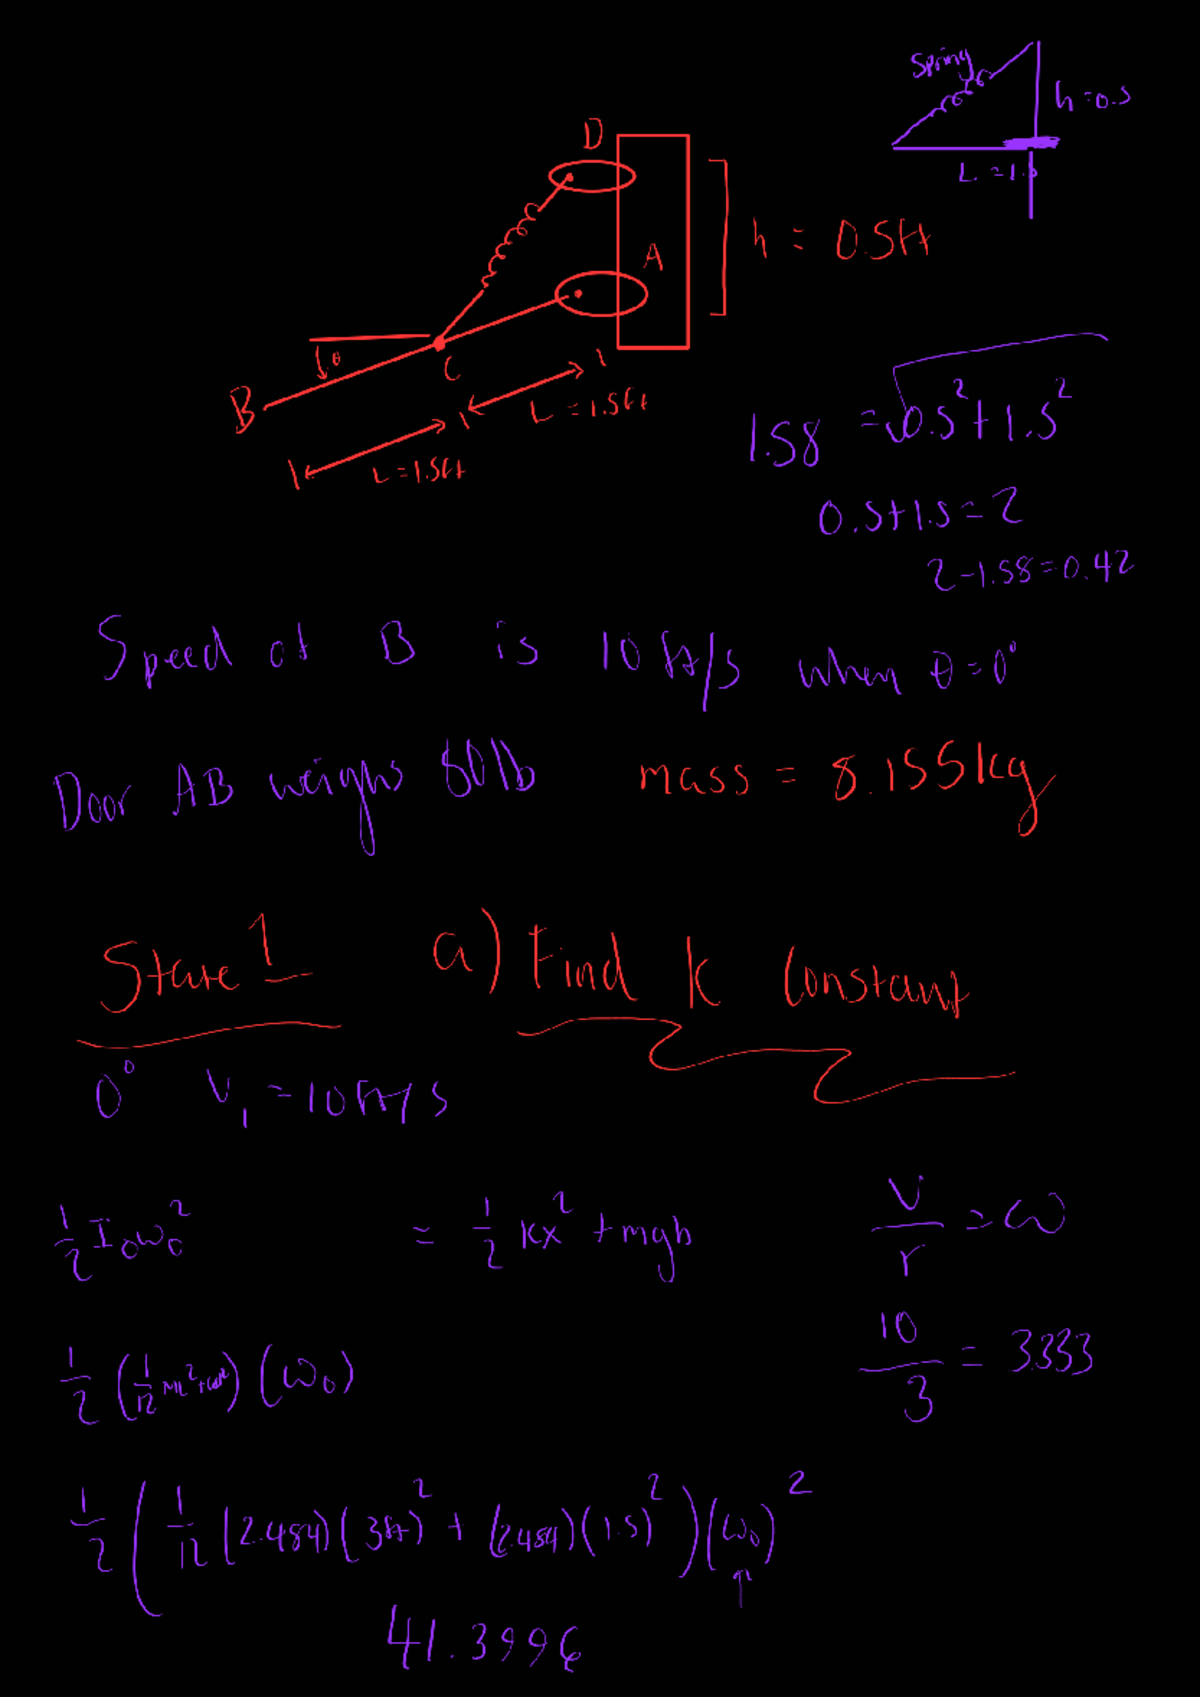 Spring
h = 0.5
L = 1.5
D
A
h = 0.5ft
θ
C
B
L = 1.5ft
L = 1.5ft
1.58 = √0.5² + 1.5²
0.5 + 1.5 = 2
2 - 1.58 = 0.42
Speed at B is 10 ft/s when θ = 0°
Door AB weighs 80lb mass = 8.155kg
State 1 a) Find K Constant
0° V₁ = 10 ft/s
1/2 I₀ω₀² = 1/2 Kx² + mgh
V/r = ω
10/3 = 3.333
1/2 (1/12 mL² + ) (ω₀)
1/2 (1/12 (2.484)(3ft)² + (2.484)(1.5)²)(ω₀)²
↑
41.3996